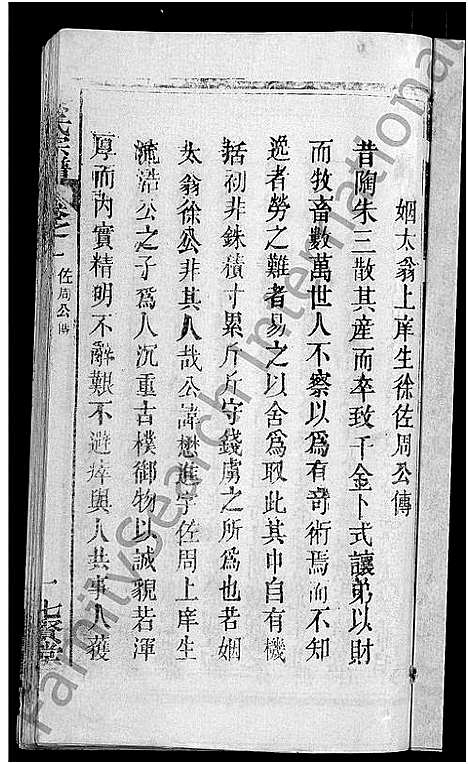 姻太翁上庠生徐佐周公傳
昔陶朱三散其產而卒致千金卜式讓弟以財
而牧畜數萬世人不察以爲有奇術焉而不知
逸者勞之難者易之以舍爲取此其中自有機
括初非銖積寸累斤斤守錢虜之所爲也若姻
太翁徐公非其人哉公諱懋進字佐周上庠生
流浩公之子爲人沉重古樸御物以誠貌若渾
厚而內實精明不辭艱不避瘁與人共事人獲
氏宗譜 卷之一 佐周公傳 一 七賢堂
FamilySearch International